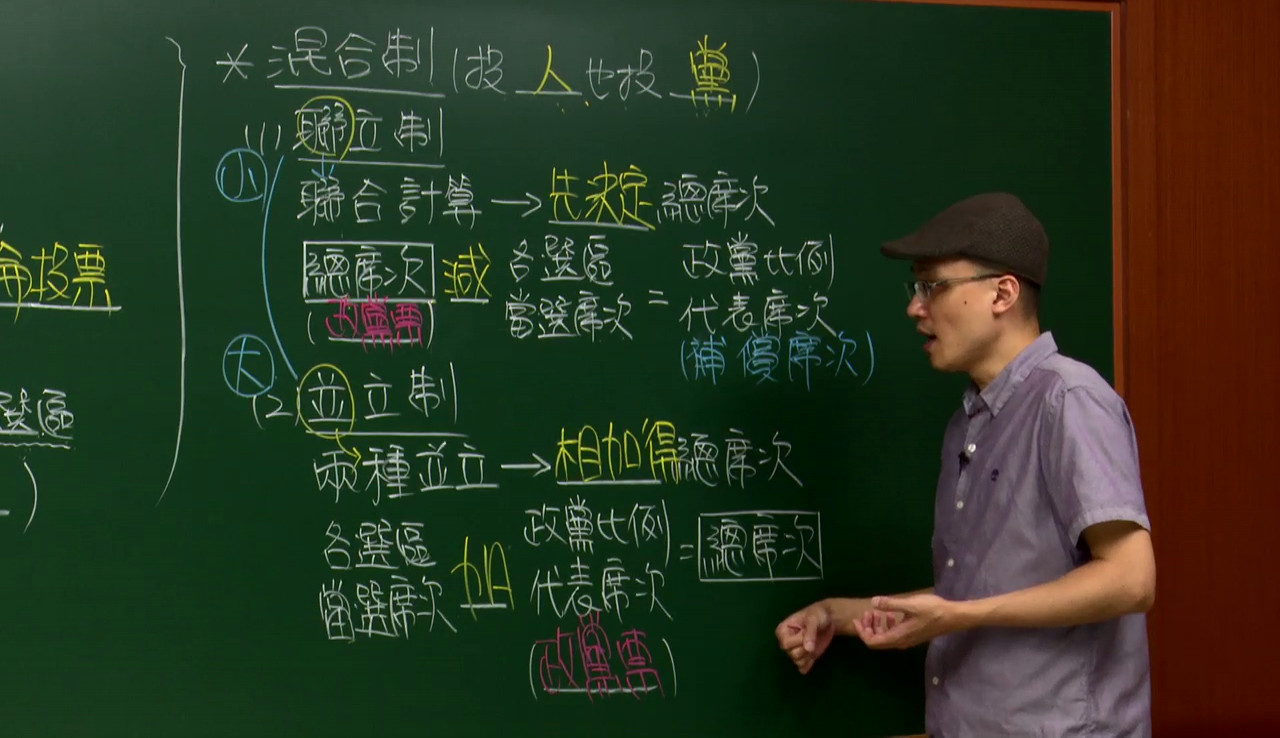 投票
選區
)
* 混合制(投人也投黨)
(1) 聯立制
小
聯合計算→先決定總席次
總席次 減 各選區當選席次 = 政黨比例代表席次
(政黨票)
(補償席次)
大
(2) 並立制
兩種並立→相加得總席次
各選區當選席次 加 政黨比例代表席次 = 總席次
(政黨票)